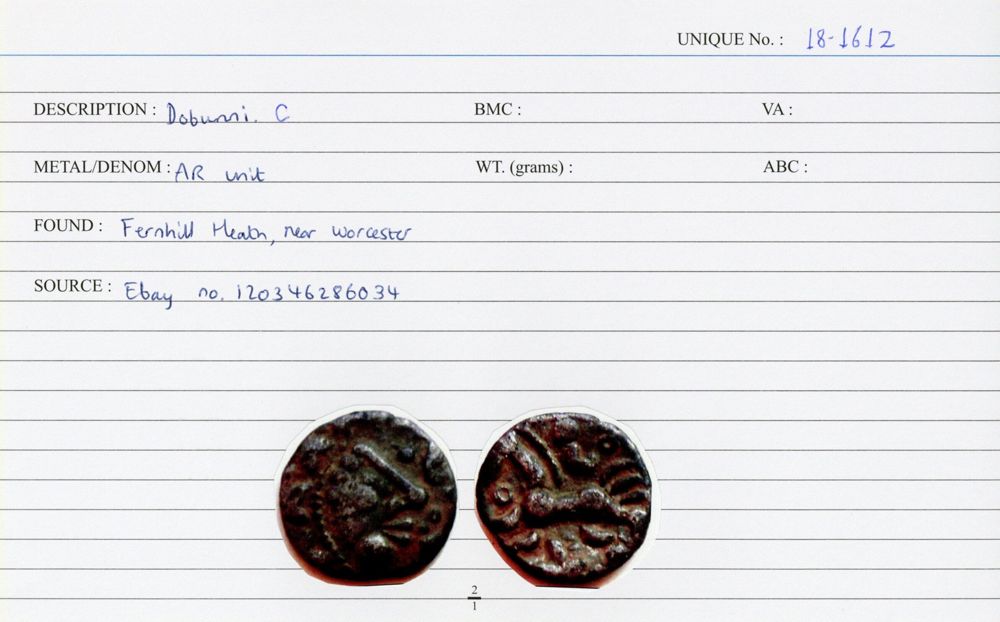 UNIQUE No. : 18-1612
DESCRIPTION : Dobunni. C BMC : VA :
METAL/DENOM : AR unit WT. (grams) : ABC :
FOUND : Fernhill Heath, near Worcester
SOURCE : Ebay no. 120346286034
2
1